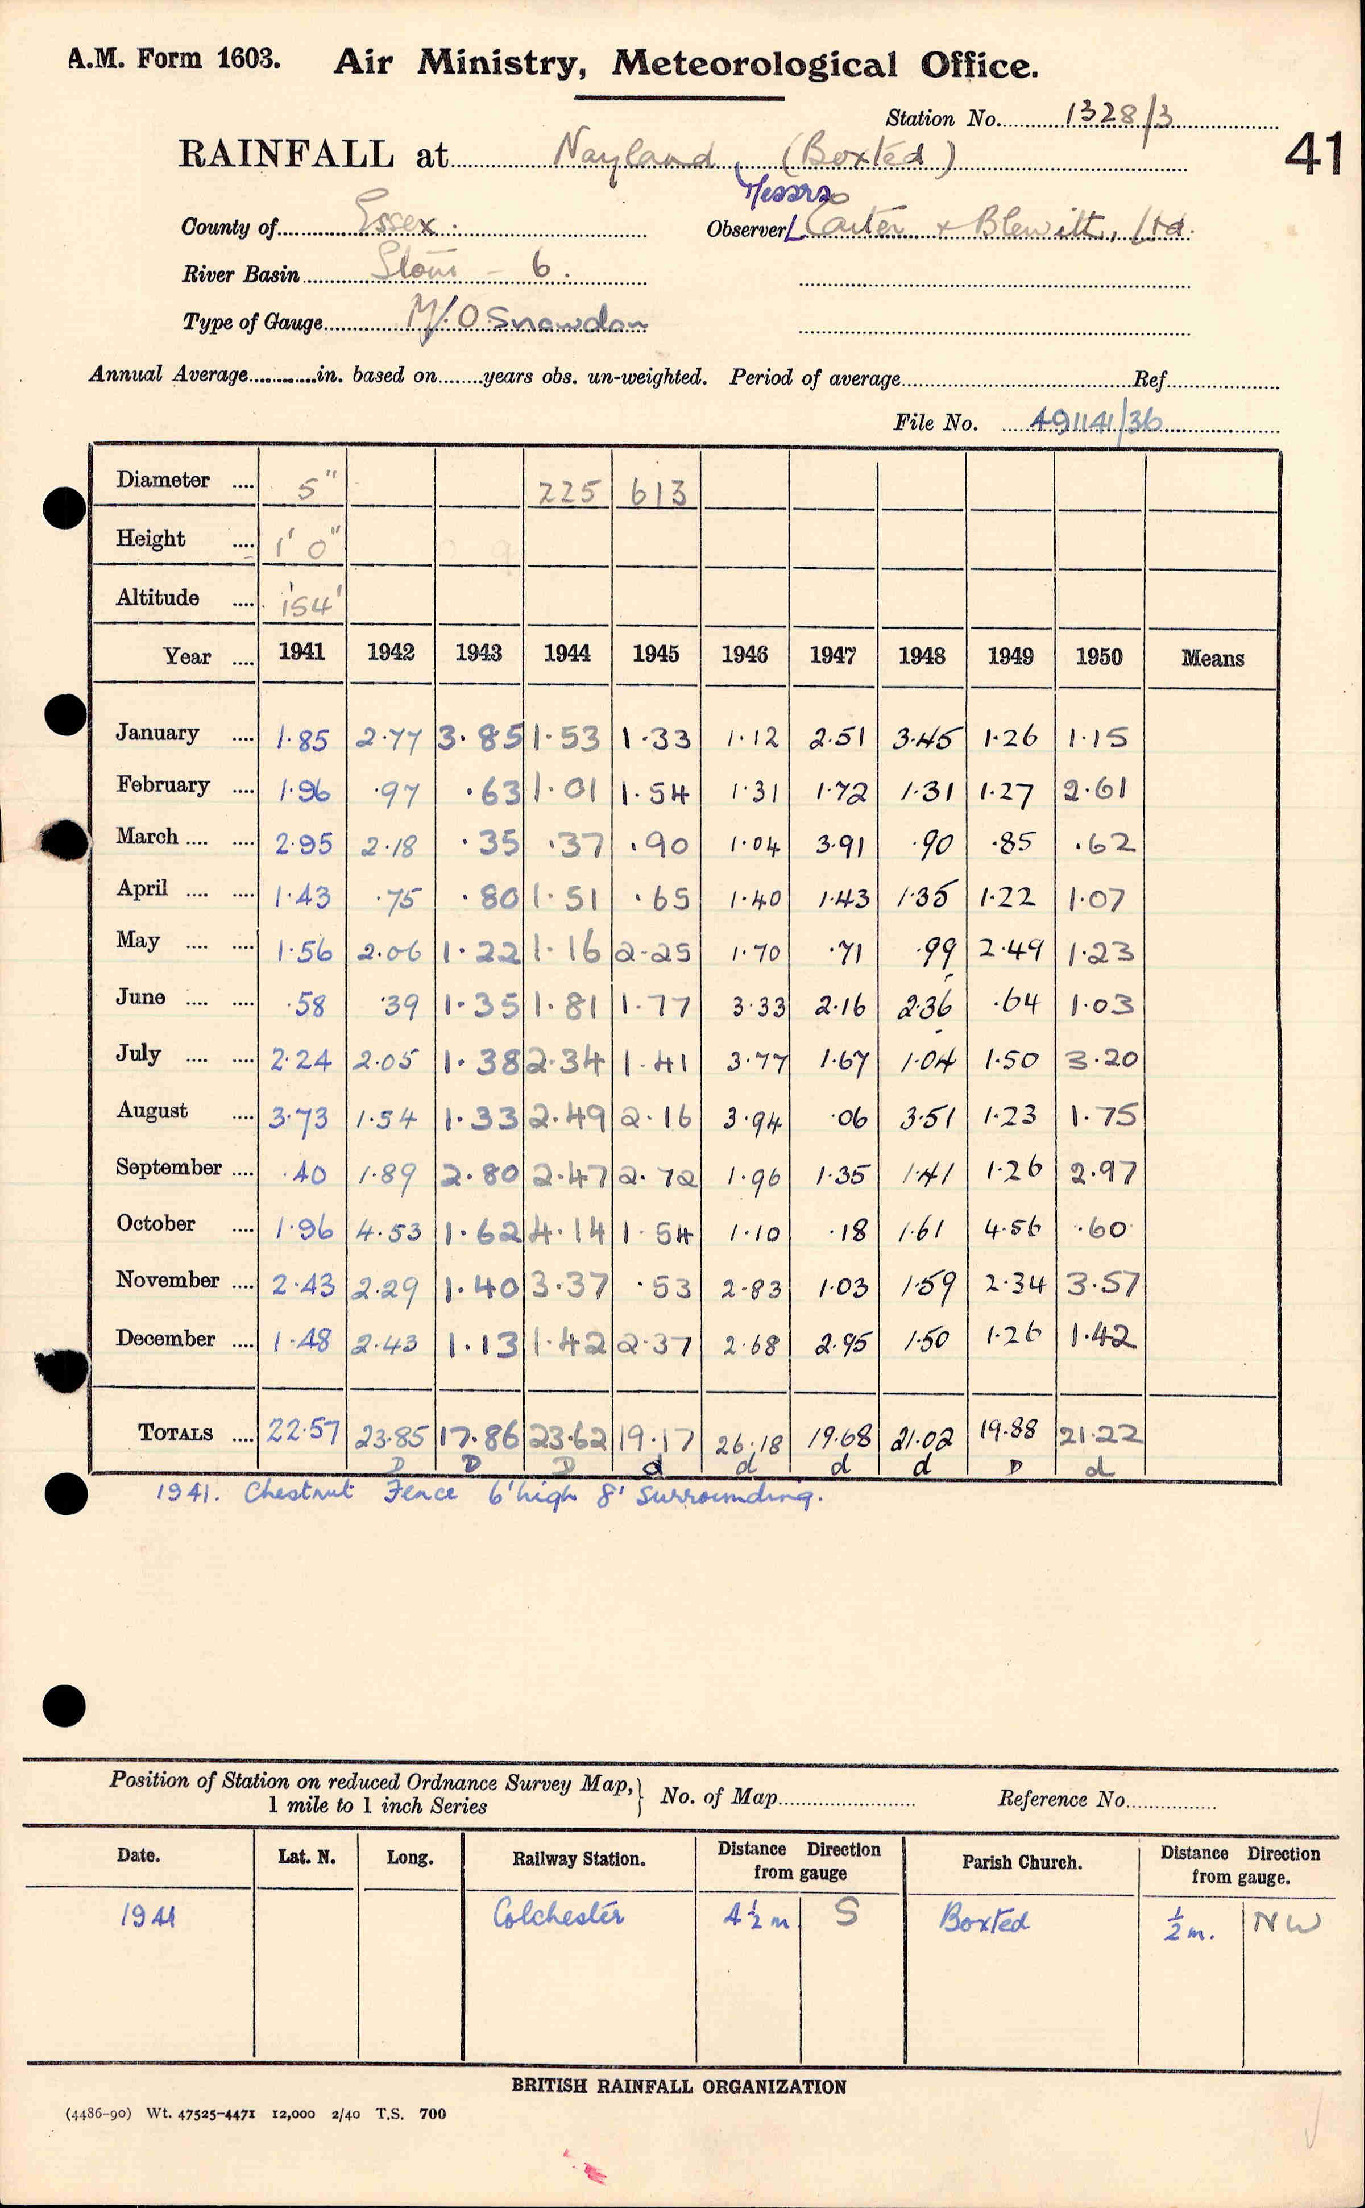 A.M. Form 1603. Air Ministry, Meteorological Office.
Station No. 1328/3
41
RAINFALL at Nayland, (Boxted)
Messrs
County of Essex. Observer Carter & Blewitt, Ltd.
River Basin Stour - 6.
Type of Gauge M/O Snowdon
Annual Average............in. based on........years obs. un-weighted. Period of average.................Ref..........
File No. 491141/36
Diameter .... 5" 225 613
Height .... 1' 0"
Altitude .... 154'
Year .... 1941 1942 1943 1944 1945 1946 1947 1948 1949 1950 Means
January .... 1.85 2.77 3.85 1.53 1.33 1.12 2.51 3.45 1.26 1.15
February .... 1.96 .97 .63 1.01 1.54 1.31 1.72 1.31 1.27 2.61
March .... .... 2.95 2.18 .35 .37 .90 1.04 3.91 .90 .85 .62
April .... .... 1.43 .75 .80 1.51 .65 1.40 1.43 1.35 1.22 1.07
May .... .... 1.56 2.06 1.22 1.16 2.25 1.70 .71 .99 2.49 1.23
June .... .... .58 .39 1.35 1.81 1.77 3.33 2.16 2.36 .64 1.03
July .... .... 2.24 2.05 1.38 2.34 1.41 3.77 1.67 1.04 1.50 3.20
August .... 3.73 1.54 1.33 2.49 2.16 3.94 .06 3.51 1.23 1.75
September .... .40 1.89 2.80 2.47 2.72 1.96 1.35 1.41 1.26 2.97
October .... 1.96 4.53 1.62 4.14 1.54 1.10 .18 1.61 4.56 .60
November .... 2.43 2.29 1.40 3.37 .53 2.83 1.03 1.59 2.34 3.57
December .... 1.48 2.43 1.13 1.42 2.37 2.68 2.95 1.50 1.26 1.42
TOTALS .... 22.57 23.85 17.86 23.62 19.17 26.18 19.68 21.02 19.88 21.22
D D D d d d d D d
1941. Chestnut Fence 6' high 8' surrounding.
Position of Station on reduced Ordnance Survey Map,} No. of Map............ Reference No............
1 mile to 1 inch Series
Date. Lat. N. Long. Railway Station. Distance Direction from gauge Parish Church. Distance Direction from gauge.
1941 Colchester 4½ m S Boxted ½ m. NW
BRITISH RAINFALL ORGANIZATION
(4486-90) Wt. 47525-4471 12,000 2/40 T.S. 700